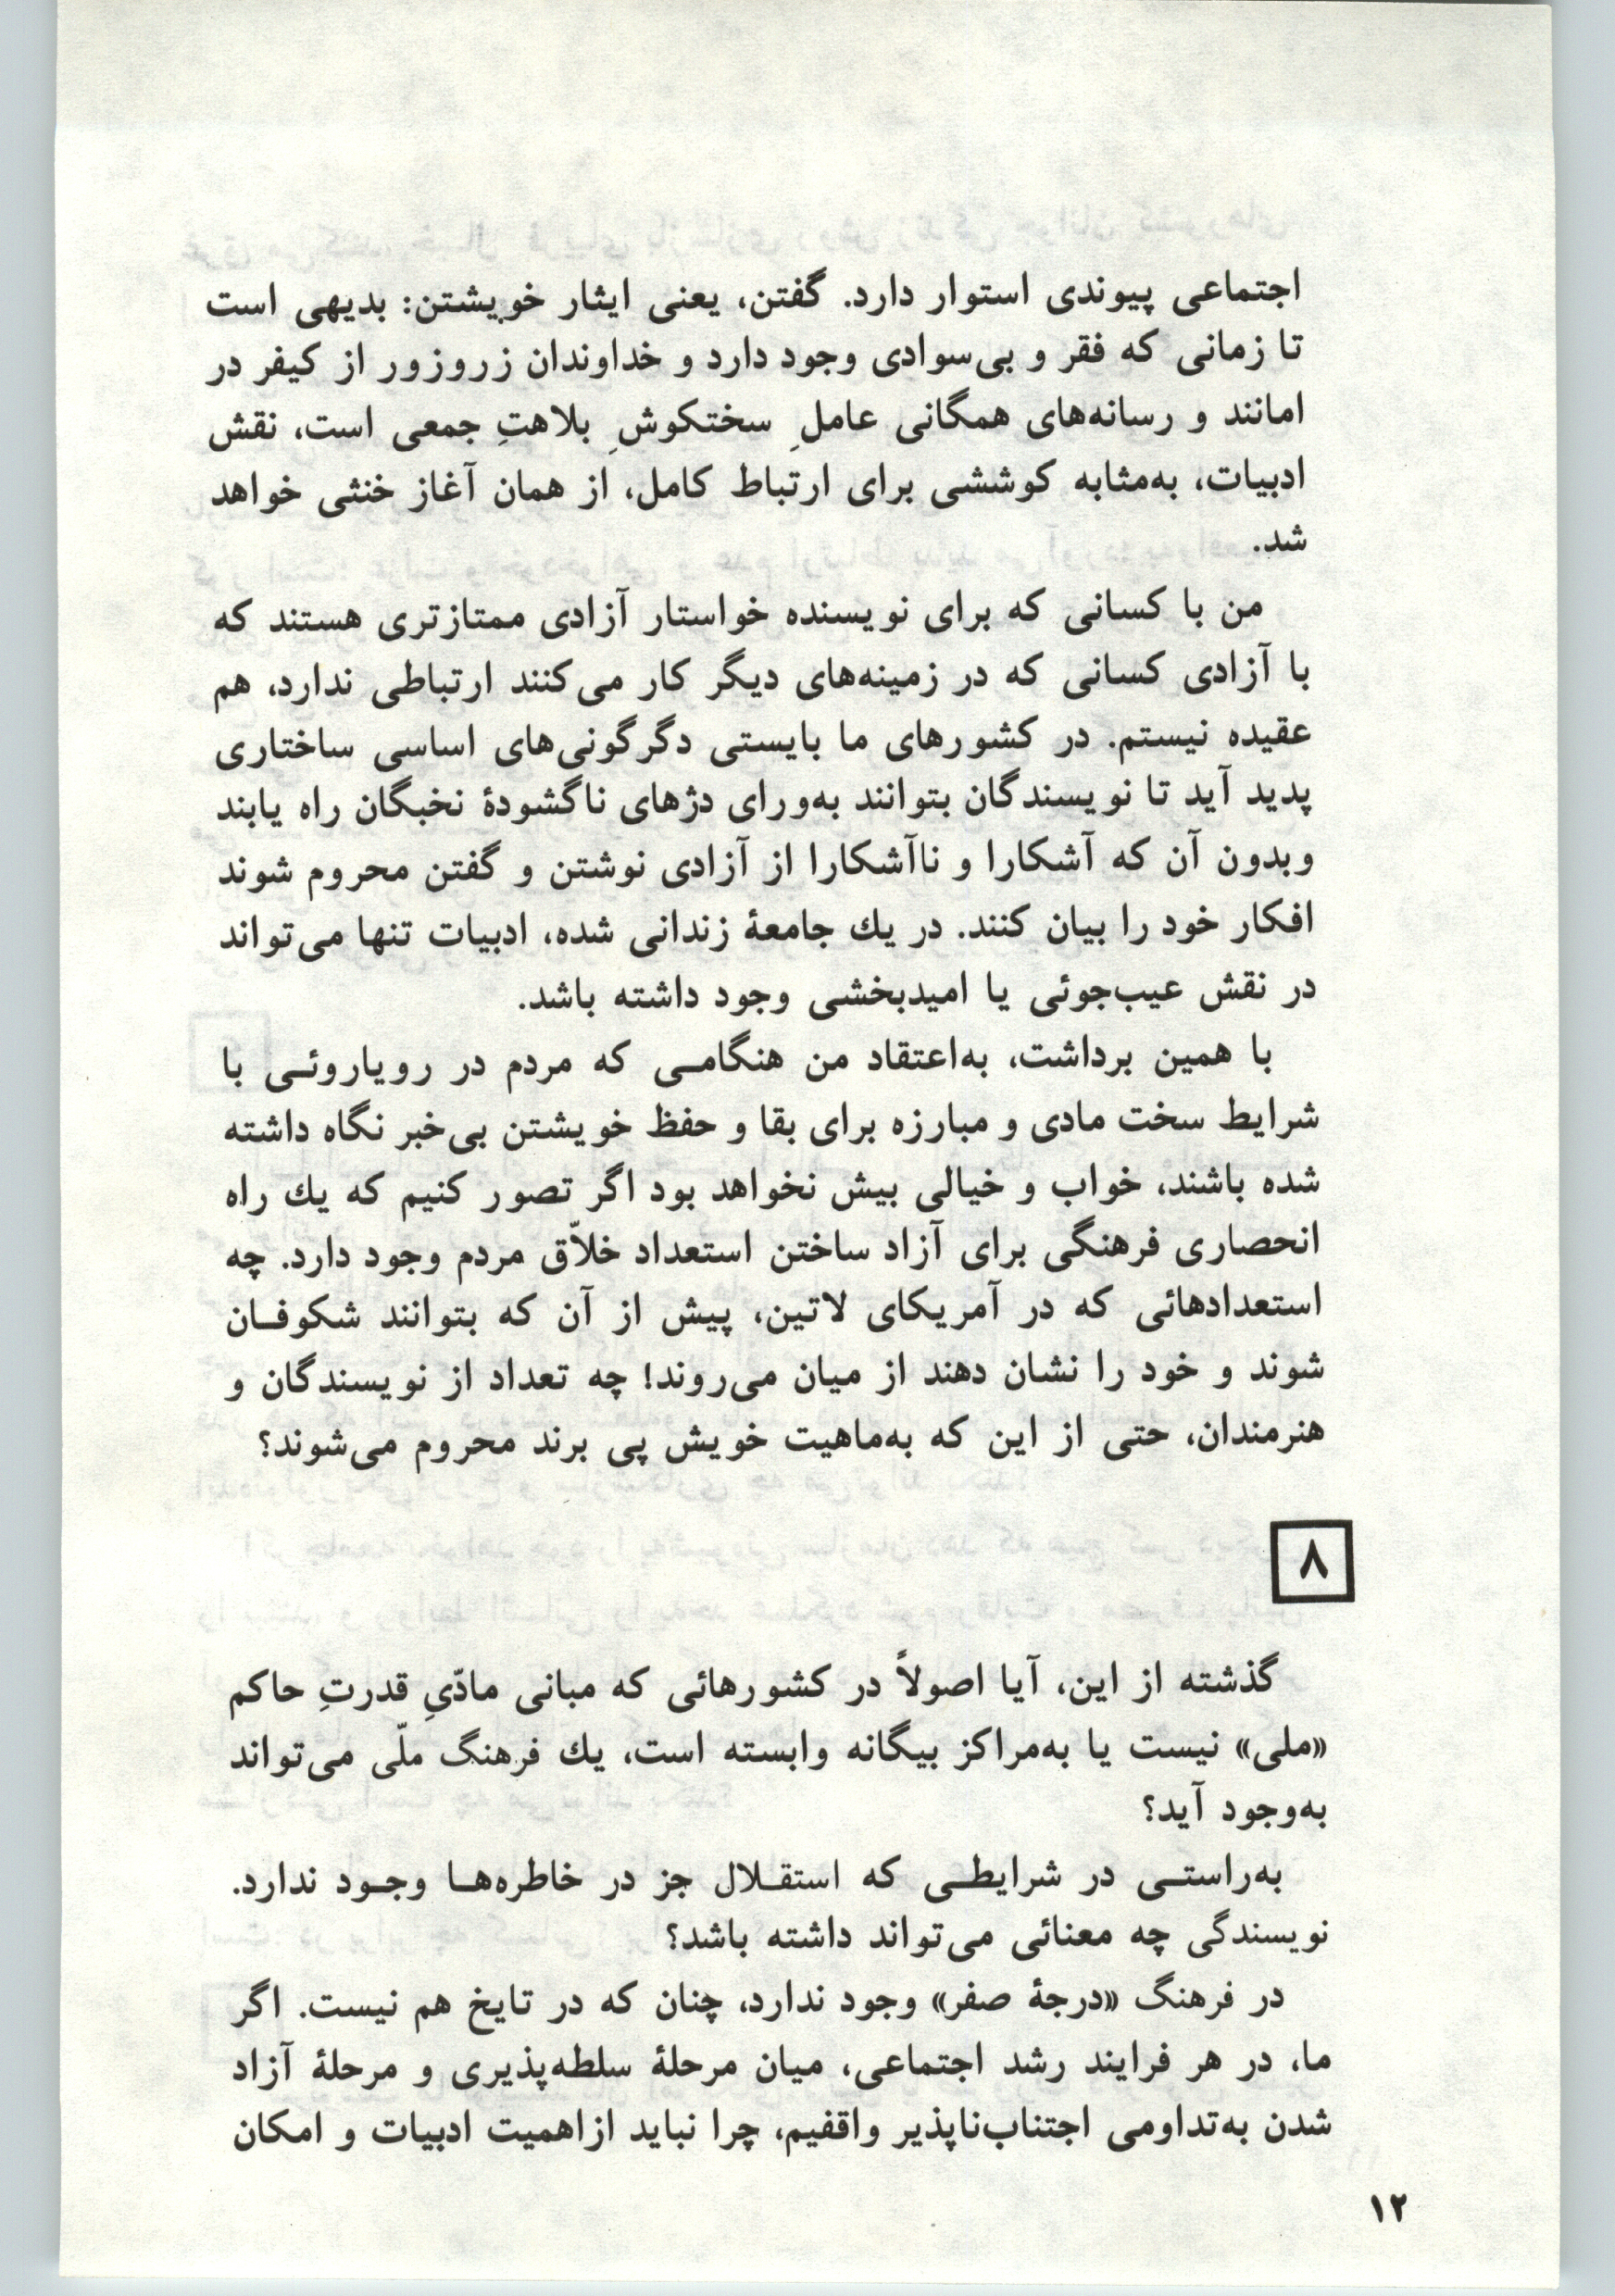 اجتماعی پیوندی استوار دارد. گفتن، یعنی ایثار خویشتن: بدیهی است
تا زمانی که فقر و بی‌سوادی وجود دارد و خداوندان زروزور از کیفر در
امانند و رسانه‌های همگانی عاملِ سختکوشِ بلاهتِ جمعی است، نقش
ادبیات، به‌مثابه کوششی برای ارتباط کامل، از همان آغاز خنثی خواهد
شد.
من با کسانی که برای نویسنده خواستار آزادی ممتازتری هستند که
با آزادی کسانی که در زمینه‌های دیگر کار می‌کنند ارتباطی ندارد، هم
عقیده نیستم. در کشورهای ما بایستی دگرگونی‌های اساسی ساختاری
پدید آید تا نویسندگان بتوانند به‌ورای دژهای ناگشودهٔ نخبگان راه یابند
وبدون آن که آشکارا و ناآشکارا از آزادی نوشتن و گفتن محروم شوند
افکار خود را بیان کنند. در یك جامعهٔ زندانی شده، ادبیات تنها می‌تواند
در نقش عیب‌جوئی یا امیدبخشی وجود داشته باشد.
با همین برداشت، به‌اعتقاد من هنگامـی که مردم در رویاروئـی با
شرایط سخت مادی و مبارزه برای بقا و حفظ خویشتن بی‌خبر نگاه داشته
شده باشند، خواب و خیالی بیش نخواهد بود اگر تصور کنیم که یك راه
انحصاری فرهنگی برای آزاد ساختن استعداد خلاّق مردم وجود دارد. چه
استعدادهائی که در آمریکای لاتین، پیش از آن که بتوانند شکوفـان
شوند و خود را نشان دهند از میان می‌روند! چه تعداد از نویسندگان و
هنرمندان، حتی از این که به‌ماهیت خویش پی برند محروم می‌شوند؟
۸
گذشته از این، آیا اصولاً در کشورهائی که مبانی مادّیِ قدرتِ حاکم
«ملی» نیست یا به‌مراکز بیگانه وابسته است، یك فرهنگ ملّی می‌تواند
به‌وجود آید؟
به‌راستـی در شرایطـی که استقـلال جز در خاطره‌هـا وجـود ندارد.
نویسندگی چه معنائی می‌تواند داشته باشد؟
در فرهنگ «درجهٔ صفر» وجود ندارد، چنان که در تایخ هم نیست. اگر
ما، در هر فرایند رشد اجتماعی، میان مرحلهٔ سلطه‌پذیری و مرحلهٔ آزاد
شدن به‌تداومی اجتناب‌ناپذیر واقفیم، چرا نباید ازاهمیت ادبیات و امکان
۱۲